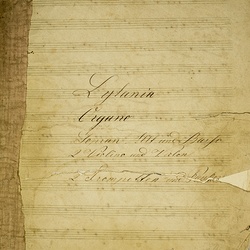 Lytania
Organo
Sopran Alt und Bass
2 Violino und Violon
2 Trompetten und